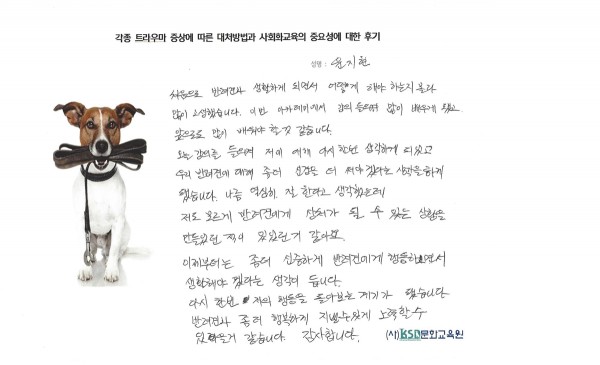 각종 트라우마 증상에 따른 대처방법과 사회화교육의 중요성에 대한 후기
성명 : 윤지현
처음으로 반려견과 생활하게 되면서 어떻게 해야 하는지 몰라
많이 고생했습니다. 이번 아카데미에서 강의 들으며 많이 배우게 됐고
앞으로도 많이 배워야 할 것 같습니다.
오늘 강의를 들으며 저에 대해 다시 한번 생각하게 되었고
우리 반려견에 대해 좀더 신경을 더 써야겠다는 생각을 하게
됐습니다. 나름 열심히 잘 한다고 생각했는데
저도 모르게 반려견에게 상처가 될 수 있는 상황을
만들었던 적이 있었던거 같아요.
이제부터는 좀더 신중하게 반려견에게 행동하면서
생활해야 겠다는 생각이 듭니다.
다시 한번 저의 행동을 돌아보는 계기가 됐습니다
반려견과 좀더 행복하게 지낼수있게 노력할 수
있을거 같습니다. 감사합니다.
(사)KSD문화교육원